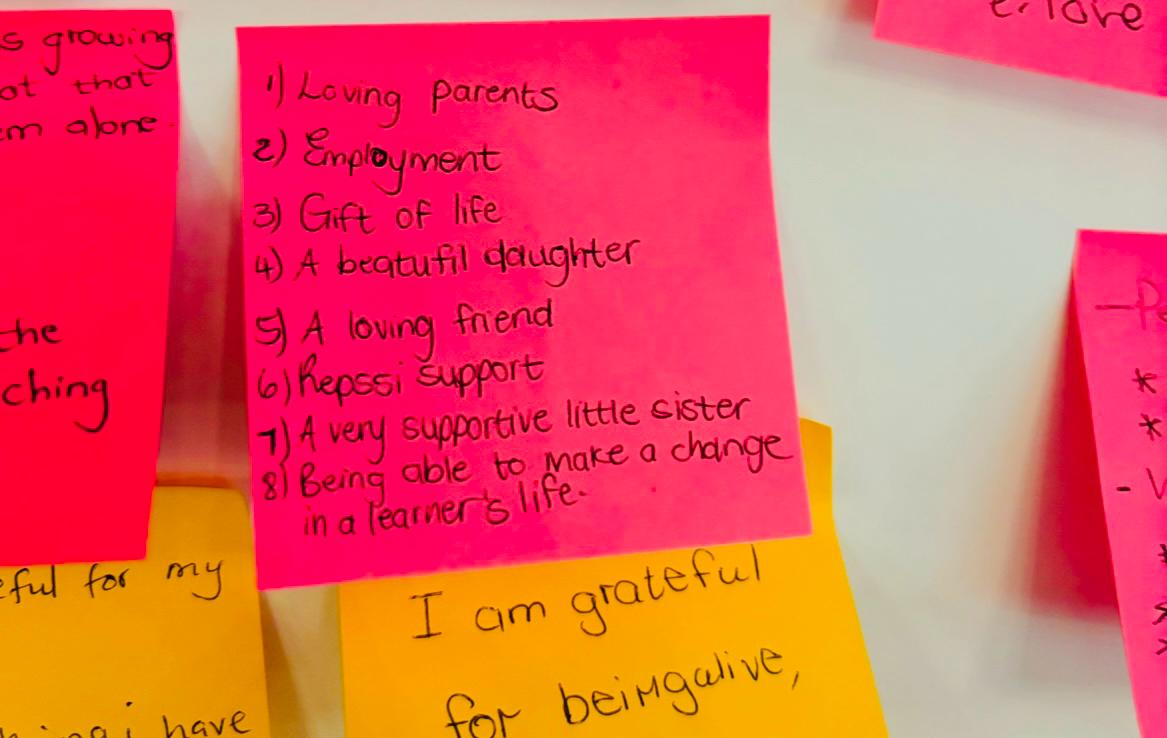 s growing
at that
em alone
the
ching
eful for my
i have
1) Loving parents
2) Employment
3) Gift of life
4) A beatufil daughter
5) A loving friend
6) Repssi support
7) A very supportive little sister
8) Being able to make a change
in a learner's life.
I am grateful
for beimgalive,
love
*
*
-